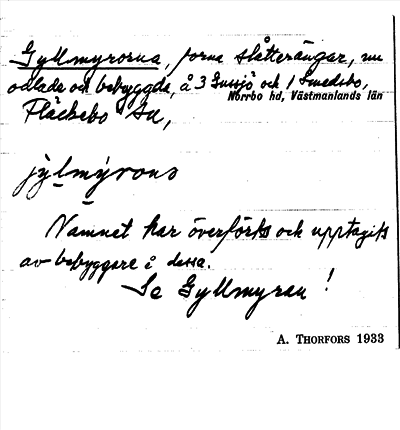 Gyllmyrorna, forna slåtterängar, nu
odlade och bebyggda, å 3 Gussjö och 1 Smedsbo,
Norrbo hd, Västmanlands län
Fläckebo sn,
jỳlmýrons
Namnet har överförts och upptagits
av bebyggare å dessa.
Se Gyllmyran!
A. THORFORS 1933